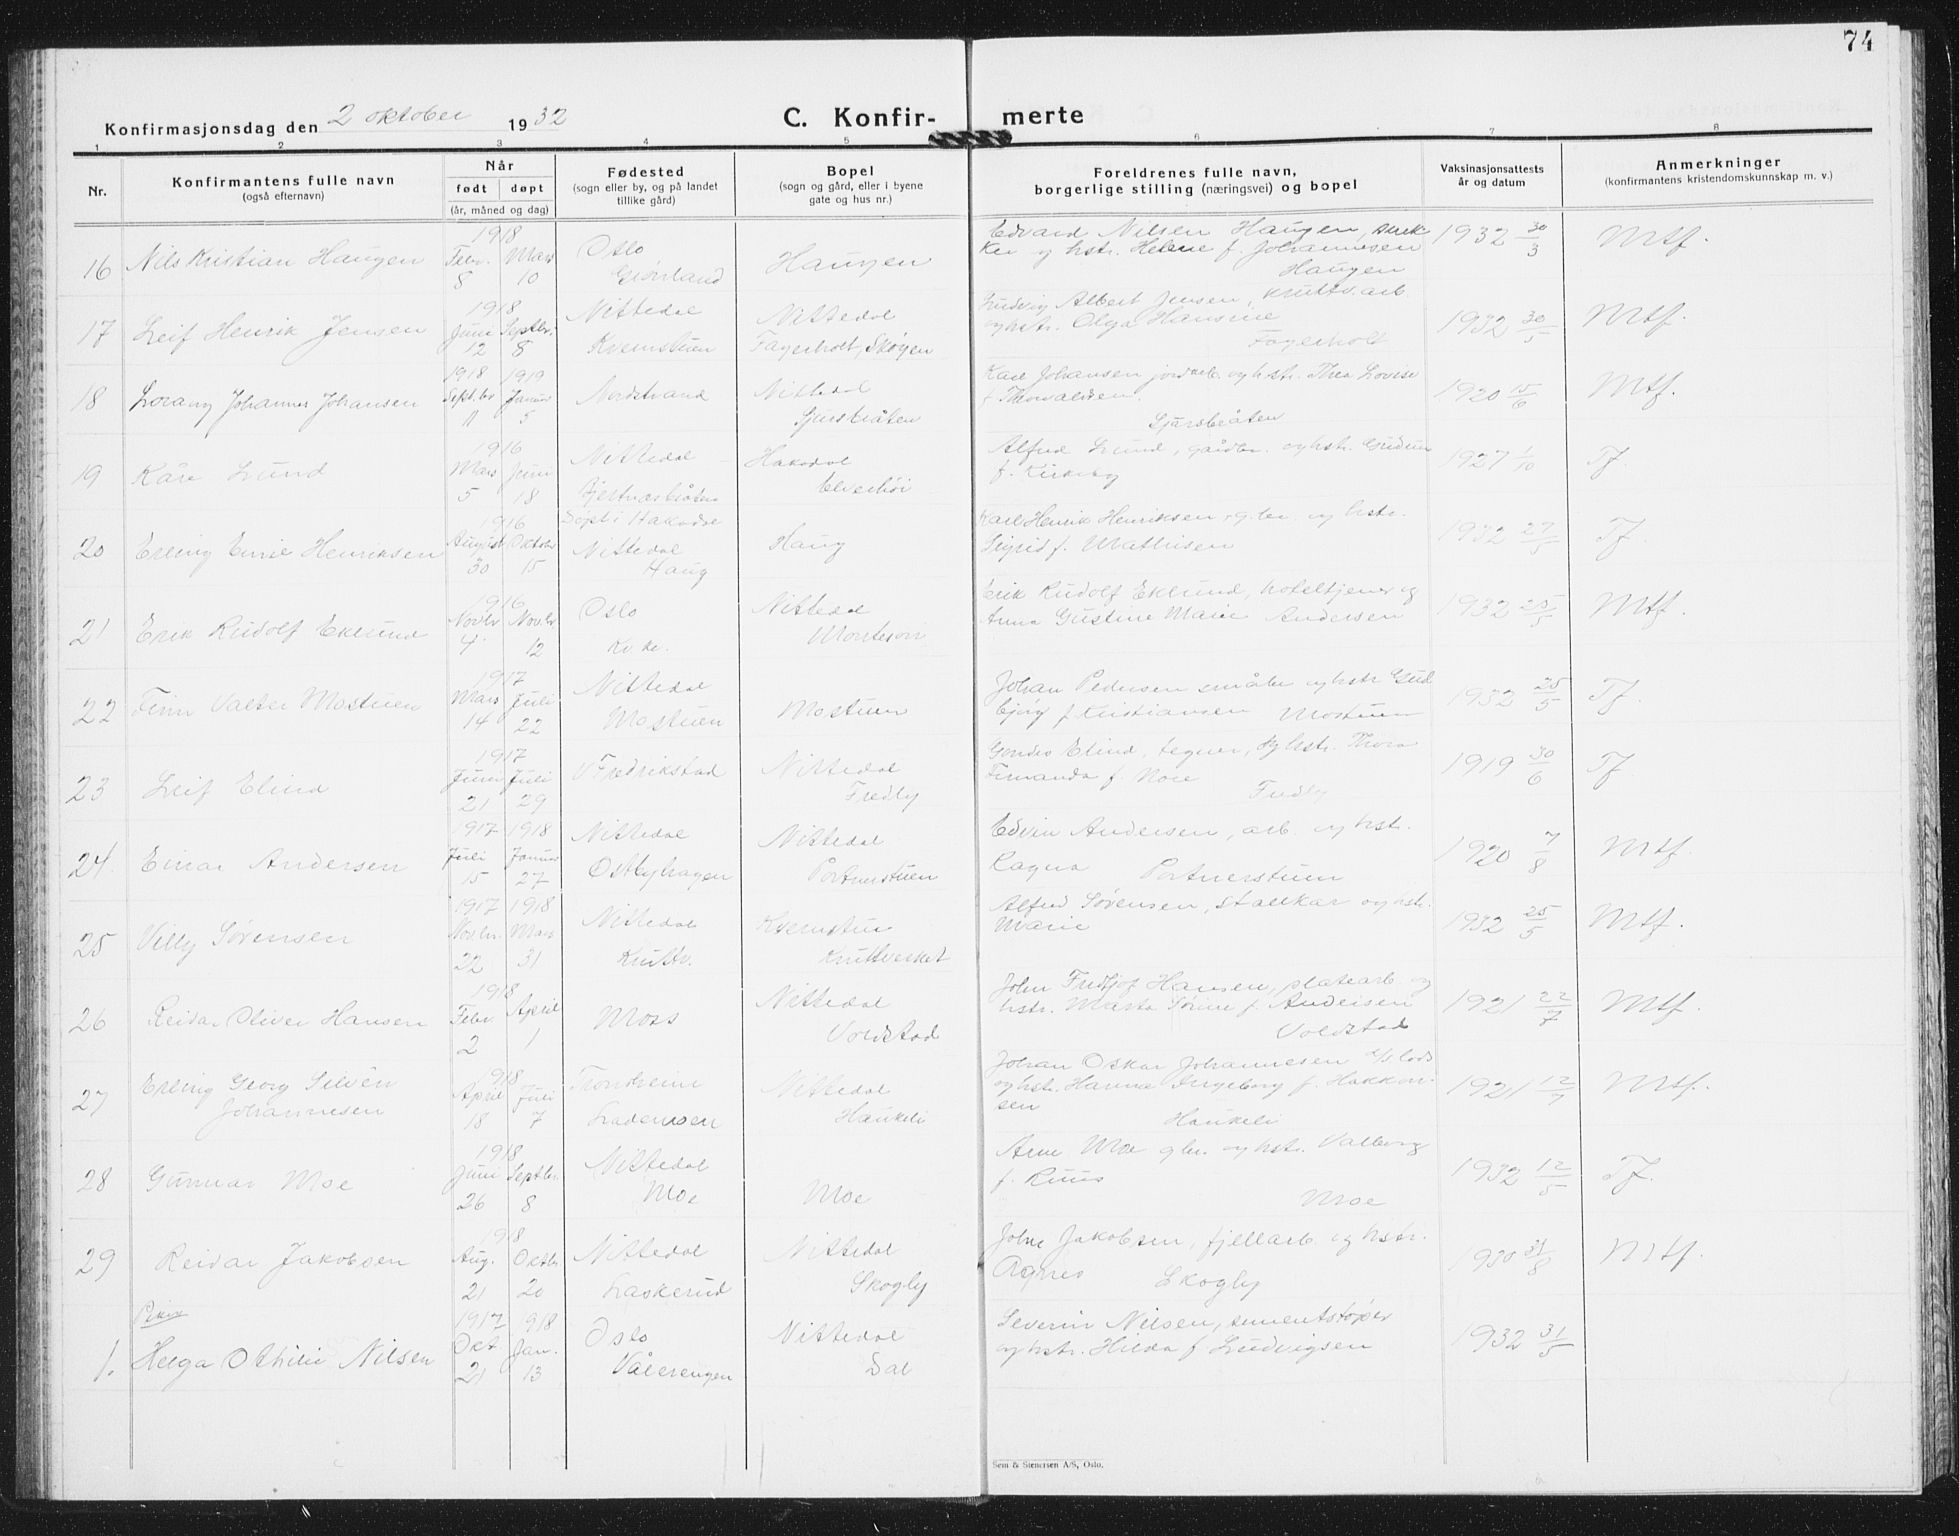 74
Konfirmasjonsdag den 2 oktober 1932
C. Konfir- merte
1 2 3 4 5 6 7 8
Nr.
Konfirmantens fulle navn
(også efternavn)
Når
født døpt
(år, måned og dag)
Fødested
(sogn eller by, og på landet
tillike gård)
Bopel
(sogn og gård, eller i byene
gate og hus nr.)
Foreldrenes fulle navn,
borgerlige stilling (næringsvei) og bopel
Vaksinasjonsattests
år og datum
Anmerkninger
(konfirmantens kristendomskunnskap m. v.)
16 Nils Kristian Haugen
1918
Febr. Mars
8 10
Oslo
Grønland
Haugen
Edvard Nilsen Haugen,
og hstr. Helene f. Johannesen
Haugen
1932 30/3
Mtf.
17 Leif Henrik Jensen
1918
Juni Septbr.
12 8
Nittedal
Kvernstuen
Nittedal
Fagerholt, Skøyen
Ludvig Albert Jensen, kruttv.arb.
og hstr. Olga Hansine
Fagerholt
1932 30/5
Mtf.
18 Johannes Johansen
1918 1919
Septbr Januar
11 5
Nordstrand
Nittedal
Karl Johansen jordarb. og hstr. Thea Lovise
f Thorvaldsen.
1920 15/6
Mtf.
19 Kåre Lund
1916
Mars Juni
5 18
Nittedal
Hakadal
Elverhöi
Alfred Lund, gårdbr. og hstr. Gudrun
f. Kirkeby
1927 1/10
Tf.
20 Erling Emil Henriksen
1916
August Oktober
30 15
Døpt i Hakadal
Nittedal
Haug
Haug
Karl Henrik Henriksen, g.br. og hstr.
Sigrid f. Mathisen
1932 27/5
Tf.
21 Erik Rudolf Eklund
1916
Novbr Novbr
4 12
Oslo
Nittedal
Erik Rudolf Eklund, hoteltjener og
Anna Gustine Marie Andersen
1932 25/5
Mtf.
22 Finn Valter Mostuen
1917
Mars Juli
14 22
Nittedal
Mostuen
Mostuen
Johan Pedersen småbr og hstr Gud
bjørg f Kristiansen Mostuen
1932 25/5
Tf.
23 Leif Elind
1917
Juni Juli
21 29
Fredrikstad
Nittedal
Fredly
Elind, tegner, og hstr. Thora
Fernanda f. Moe
Fredly
1919 30/6
Tf
24. Einar Andersen
1917 1918
Juli Januar
15 27
Nittedal
Østbyhagen
Nittedal
Portnerstuen
Edvin Andersen, arb. og hstr.
Ragna Portnerstuen
1920 7/8
Mtf.
25 Villy Sørensen
1917 1918
Novbr. Mars
22 31
Nittedal
Kruttv.
Kvernstuen
Kruttverket
Alfred Sørensen, stallkar og hstr.
Marie
1932 25/5
Mtf.
26 Reidar Oliver Hansen
1918
Febr. April
2 1
Moss
Nittedal
Voldstad
John Fridtjof Hansen, platearb. og
hstr. Marta Sørine f. Andersen
Voldstad
1921 22/7
Mtf.
27 Erling Georg Silvén
Johannesen
1918
April Juli
18 7
Trondheim
Lademoen
Nittedal
Haukeli
Johan Oskar Johannesen
og hstr. Hanna Ingeborg f. Hakkon-
sen
Haukeli
1921 12/7
Mtf.
28 Gunnar Moe
1918
Juni Septbr.
26 8
Nittedal
Moe
Moe
Arne Moe gbr. og hstr. Valborg
f. Ruus
Moe
1932 12/5
Tf.
29 Reidar Jakobsen
1918
Aug. Oktbr.
21 20
Nittedal
Laskerud
Nittedal
Skogly
John Jakobsen, fjellarb. og hstr.
Agnes Skogly
1930 31/8
Mtf.
Piker
1. Helga Othilie Nilsen
1917 1918
Okt. Jan.
21 13
Oslo
Vålerengen
Nittedal
Dal
Severin Nilsen, sementstøper
og hstr. Hilda f Ludvigsen
1932 31/5
Sem & Stenersen A/S, Oslo.